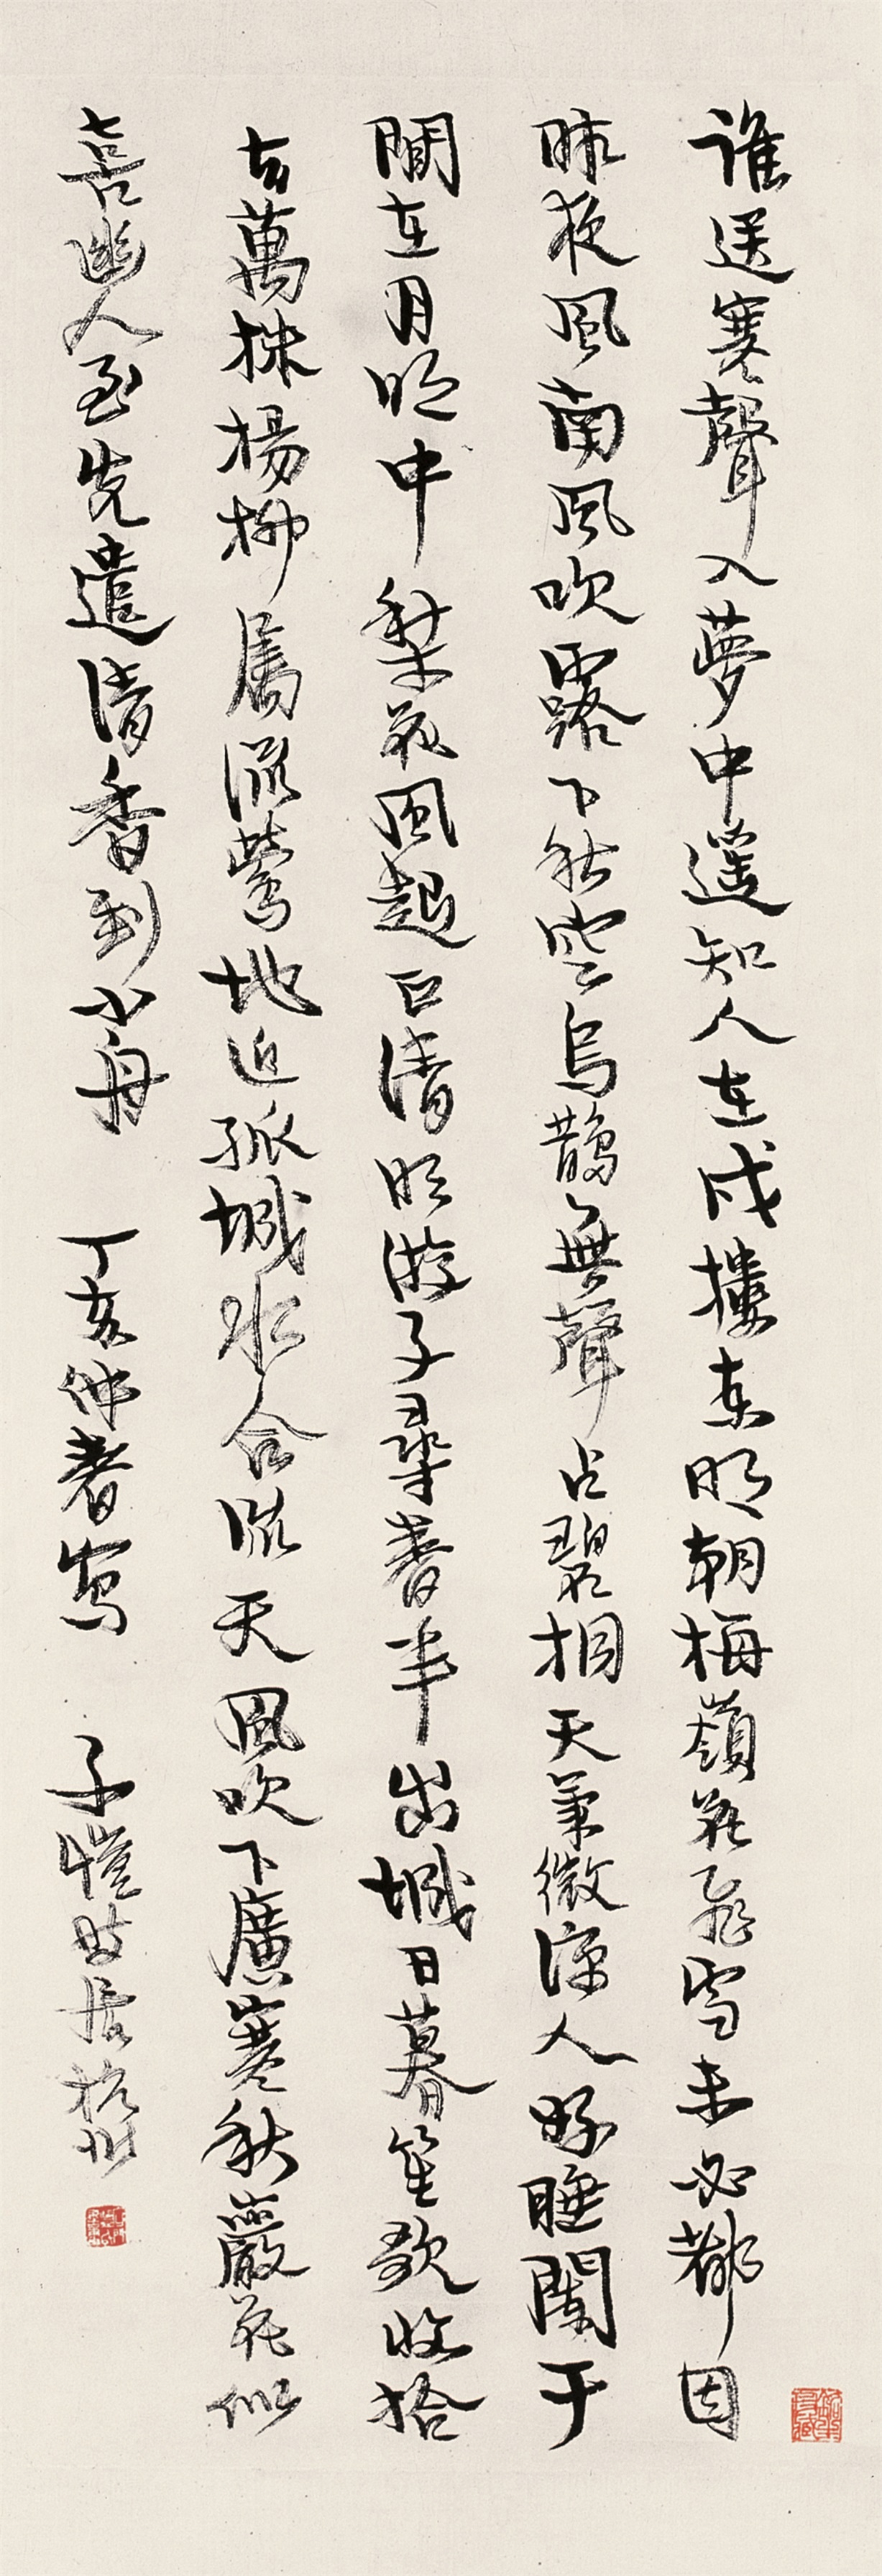 誰送寒聲入夢中遥知人在戍樓東明朝梅嶺花飛雪未必都因
昨夜風南風吹露下秋空烏鵲無聲占碧梧天氣微涼人好睡闌干
閒在月明中梨花風起正清明游子尋春半出城日暮笙歌收拾
去萬株楊柳屬流鶯地近孤城水合流天風吹下廣寒秋巖花似
喜幽人至先遣清香到小舟 丁亥仲春寫 子愷時居杭州